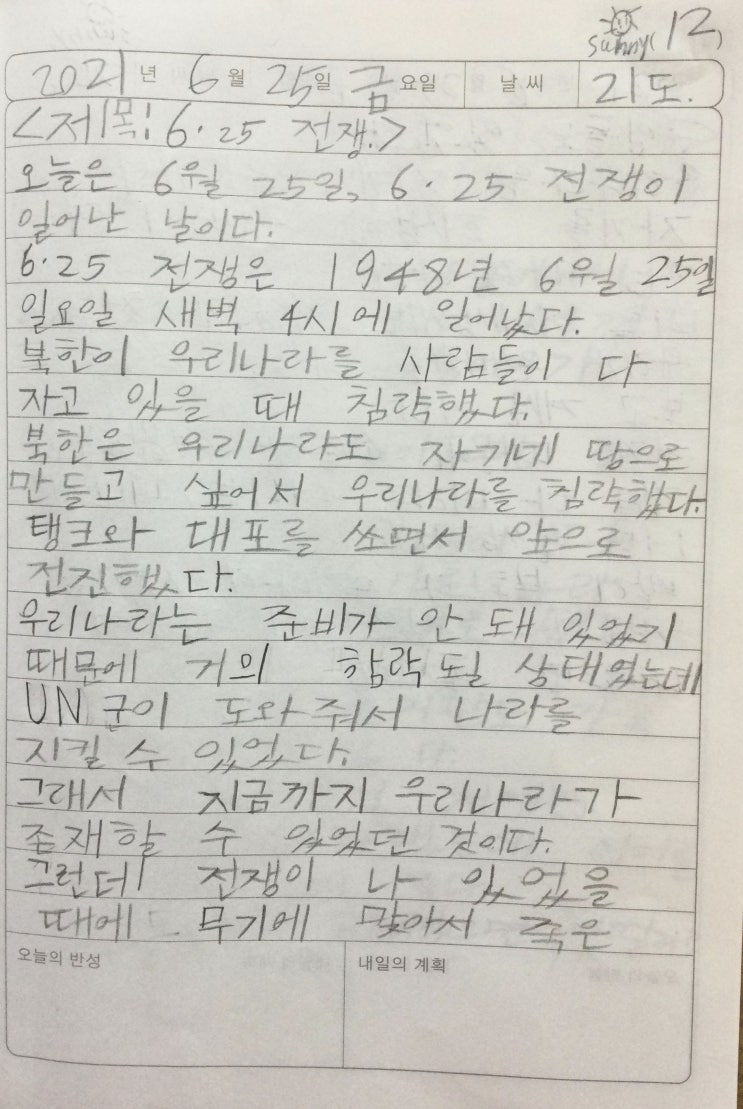 sunny( 12)
2021년 6월 25일 금요일 날씨 21도.
<제목: 6·25 전쟁.>
오늘은 6월 25일, 6·25 전쟁이
일어난 날이다.
6·25 전쟁은 1948년 6월 25일
일요일 새벽 4시에 일어났다.
북한이 우리나라를 사람들이 다
자고 있을 때 침략했다.
북한은 우리나라도 자기네 땅으로
만들고 싶어서 우리나라를 침략했다.
탱크와 대포를 쏘면서 앞으로
전진했다.
우리나라는 준비가 안 돼 있었기
때문에 거의 함락될 상태였는데
UN군이 도와줘서 나라를
지킬 수 있었다.
그래서 지금까지 우리나라가
존재할 수 있었던 것이다.
그런데 전쟁이 나 있었을
때에 무기에 맞아서 죽은
오늘의 반성 내일의 계획